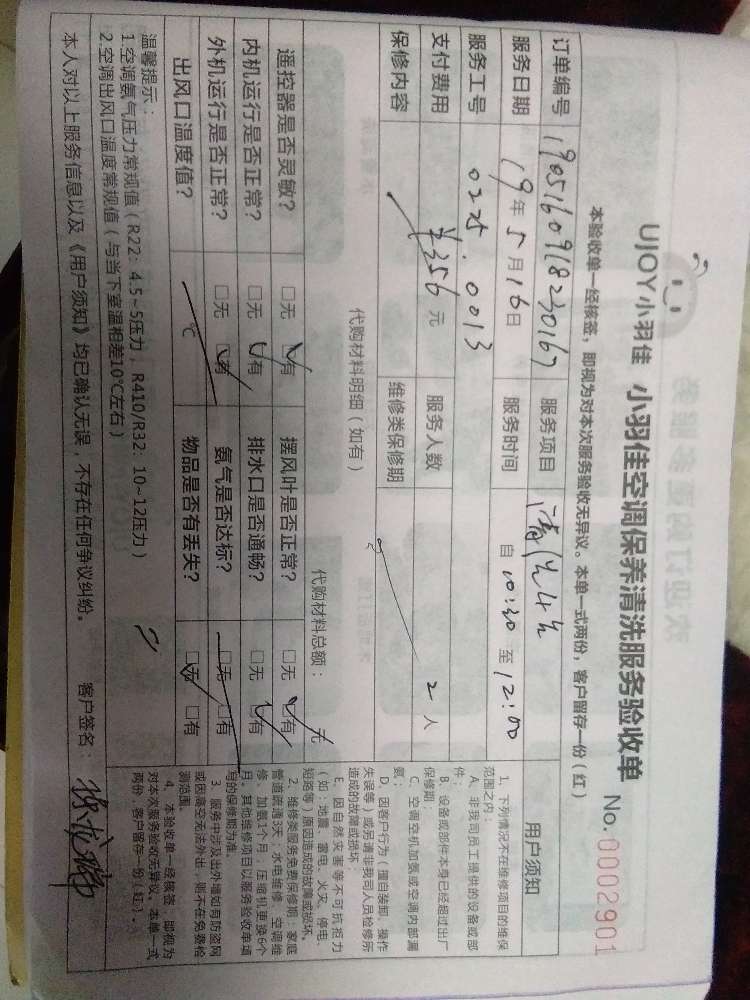 UJOY小羽佳 小羽佳空调保养清洗服务验收单 No.0002901
本验收单一经核签，即视为对本次服务验收无异议。本单一式两份，客户留存一份（红）
订单编号 1905160918230167 服务项目 清洗4台
服务日期 19年5月16日 服务时间 自10:30至12:00
服务工号 0225 0013 服务人数 2人
支付费用 ￥356元 维修类保修期
保修内容
代购材料明细（如有）
代购材料总额： 元
遥控器是否灵敏？ □无 □有 摆风叶是否正常？ □无 □有
内机运行是否正常？ □无 □有 排水口是否通畅？ □无 □有
外机运行是否正常？ □无 □有 氨气是否达标？ □无 □有
出风口温度值？ ℃ 物品是否有丢失？ □无 □有
温馨提示：
1.空调氨气压力常规值（R22：4.5~5压力，R410/R32：10~12压力）
2.空调出风口温度常规值（与当下室温相差10℃左右）
本人对以上服务信息以及《用户须知》均已确认无误，不存在任何争议纠纷。 客户签名：
用户须知
1、下列情况不在维修项目的维保
范围之内：
A、非我司员工提供的设备或部
件；
B、设备或部件本身已经超过出厂
保修期；
C、空调空机加氨或空调内部漏
氨；
D、因客户行为（擅自装卸、操作
失误等）或另请非我司人员检修所
造成的故障或损坏；
E、因自然灾害等不可抗拒力
（如：地震、雷电、火灾、停电、
短路等）原因造成的故障或损坏。
2、维修类服务免费保修期：家庭
管道疏通3天；水电维修、空调维
修、加氨1个月；压缩机更换6个
月。其他维修项目以服务验收单填
写的保修期为准。
3、服务中涉及出外墙如有防盗网
或因高空无法外出，则不在免费检
测范围。
4、本验收单一经核签，即视为
对本次服务验收无异议。本单一式
两份，客户留存一份（红）。